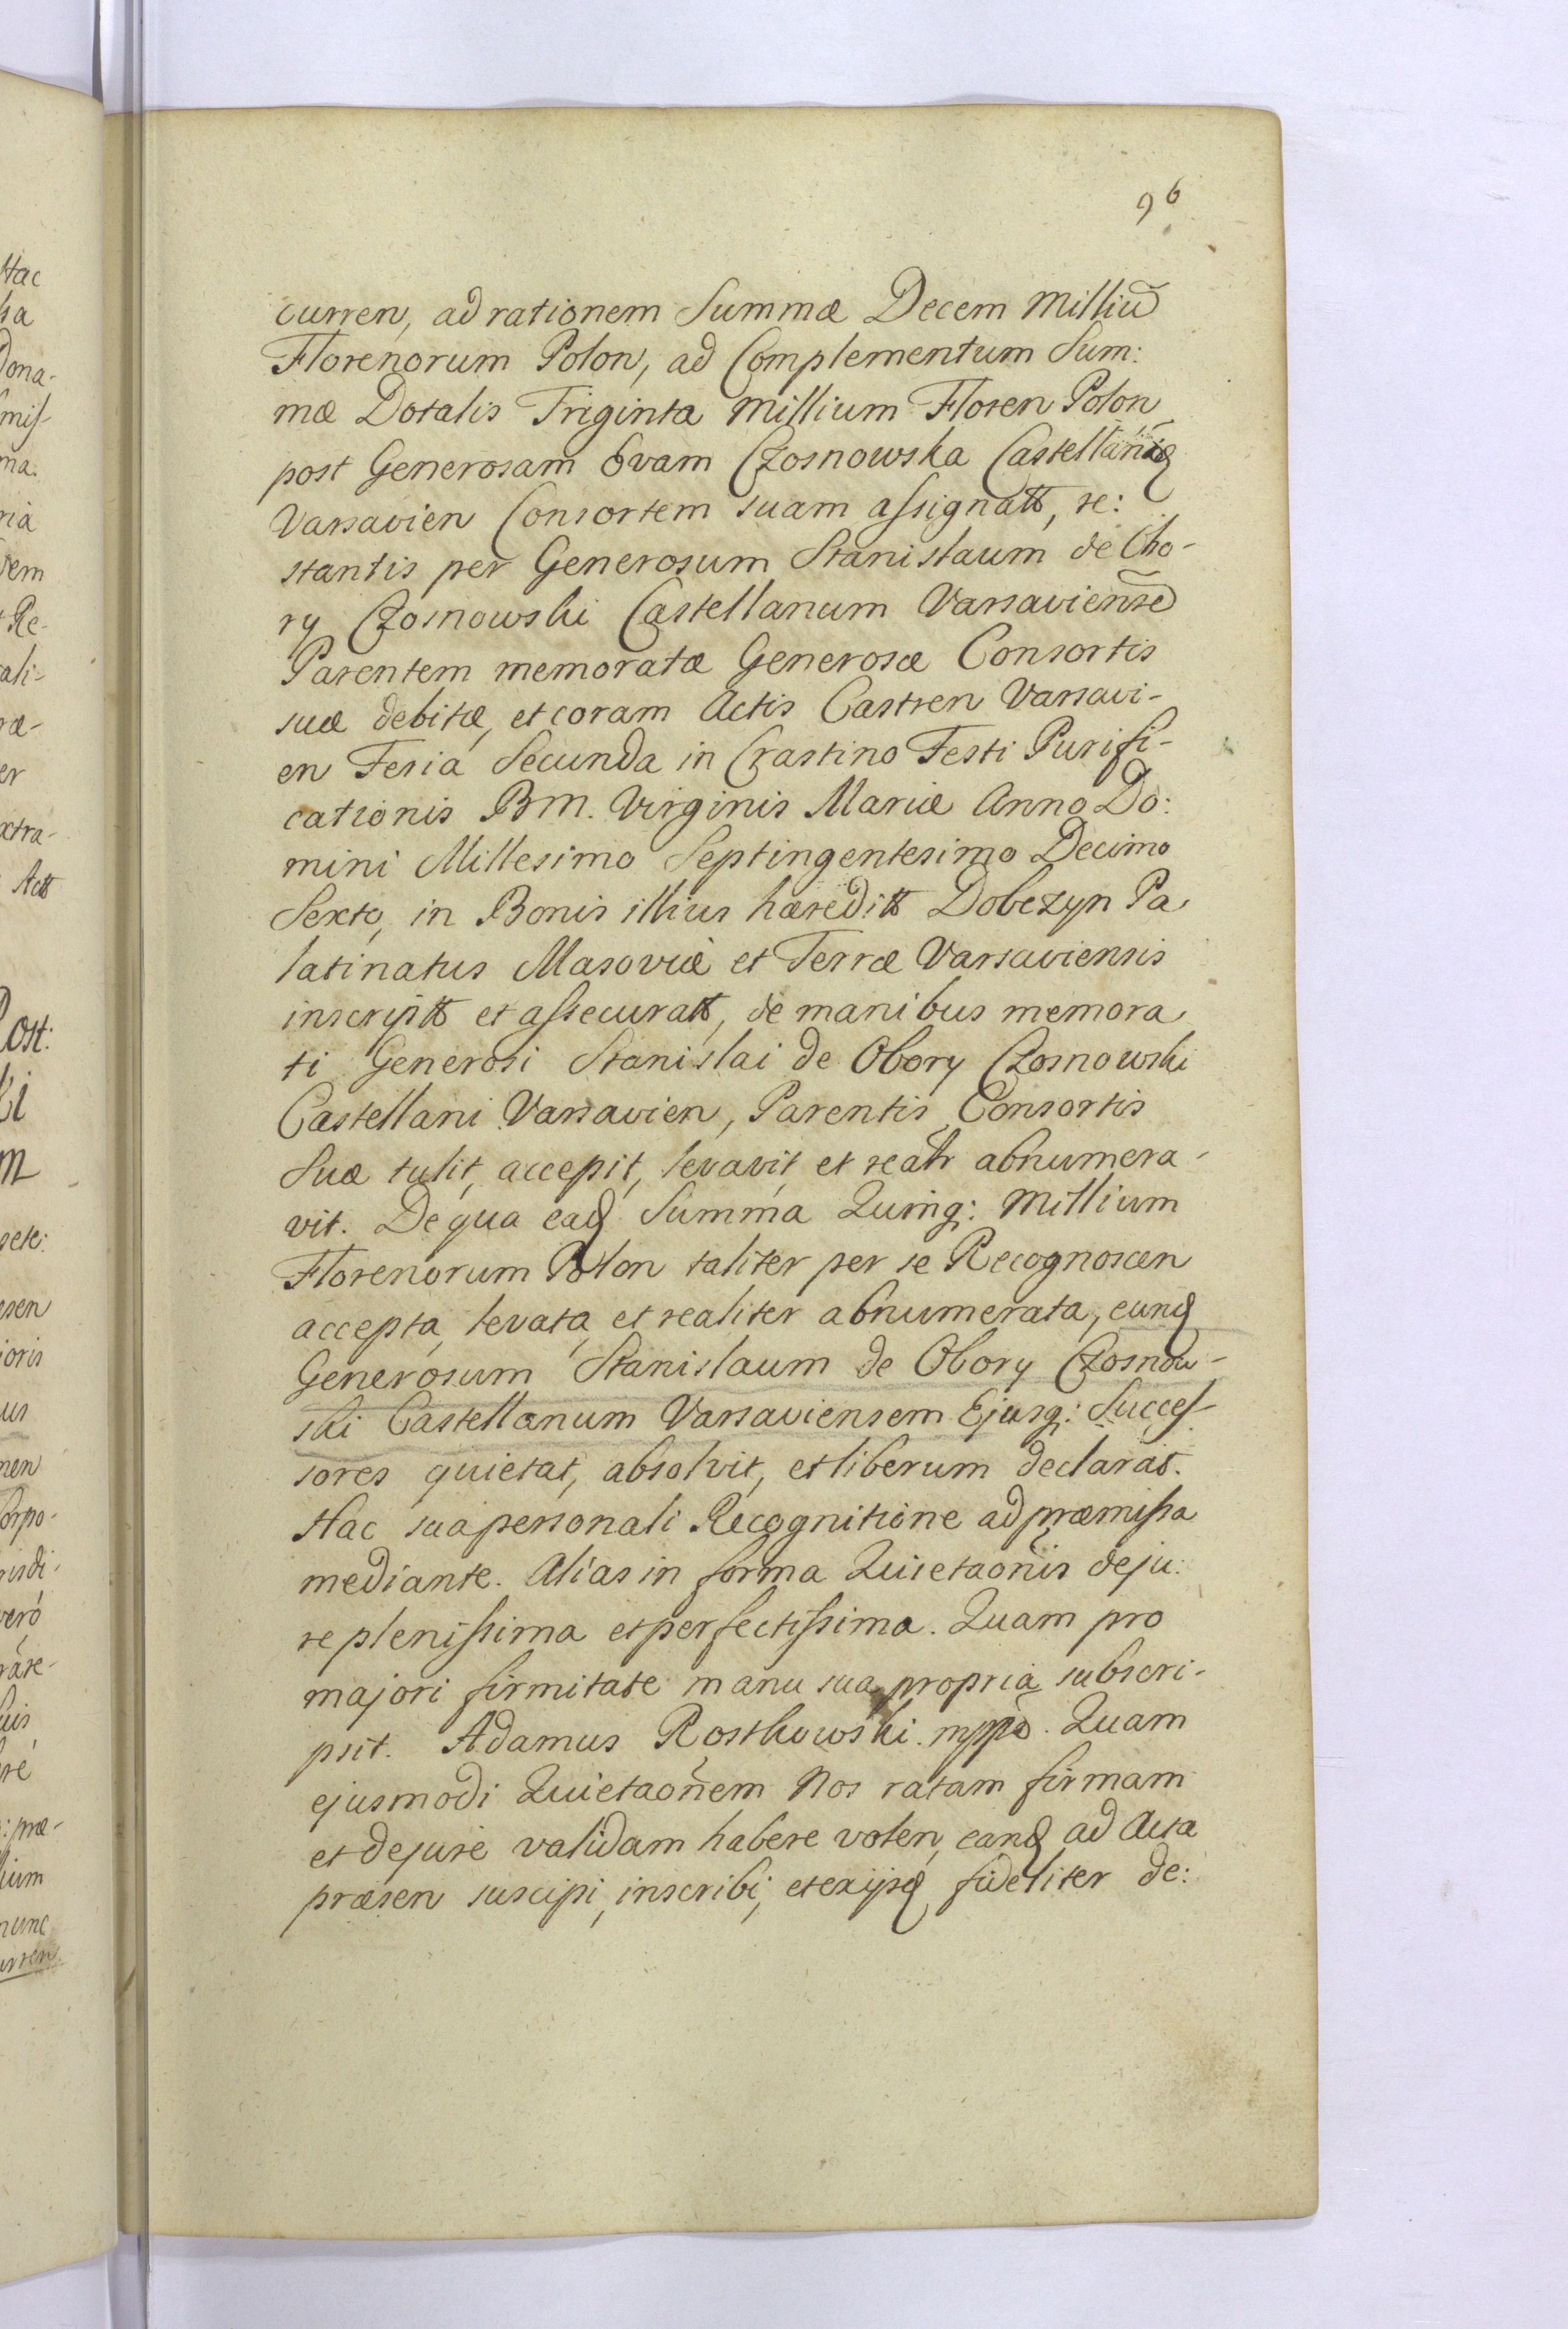 96
curren, ad rationem Summæ Decem Milliu͠
Florenorum Polon, ad Complementum Sum:
mæ Dotalis Triginta Millium Floren Polon
post Generosam Evam Czosnowska
Varsavien Consortem suam assignatt, re:
stantis per Generosum Stanislaum de Obo-
ry Czosnowski Castellanum Varsaviense͠
Parentem memoratæ Generosæ Consortis
suæ debitæ, et coram Actis Castren Varsavi-
en Feria Secunda in Crastino Festi Purifi-
cationis BM. Virginis Mariæ Anno Do:
mini Millesimo Septingentesimo Decimo
Sexto, in Bonis illius hæreditt Dobczyn Pa
latinatus Masoviæ et Terræ Varsaviensis
inscriptt et assecuratt, de manibus memora
ti Generosi Stanislai de Obory Czosnowski
Castellani Varsavien, Parentis, Consortis
Suæ tulit, accepit, levavit, et realr abnumera-
vit. De qua eadͅ Summa Quinq: Millium
Florenorum Polon taliter per se Recognoscen
accepta, levata, et realiter abnumerata, eund
Generosum Stanislaum de Obory Czosnow-
ski Castellanum Varsaviensem Ejusq: Succes-
sores quietat, absolvit, et liberum declarat.
Hac sua personali Recognitione ad præmissa
mediante. Alias in forma Quietao͠nis de ju:
re plenissima et perfectissima. Quam pro
majori firmitate manu sua propria subscri-
psit. Adamus Rostkowski mppa. Quam
ejusmodi Quietao͠nem Nos ratam firmam
et de jure validam habere volen, eand ad Acta
præsen suscipi, inscribi, et ex ijsd fideliter de: